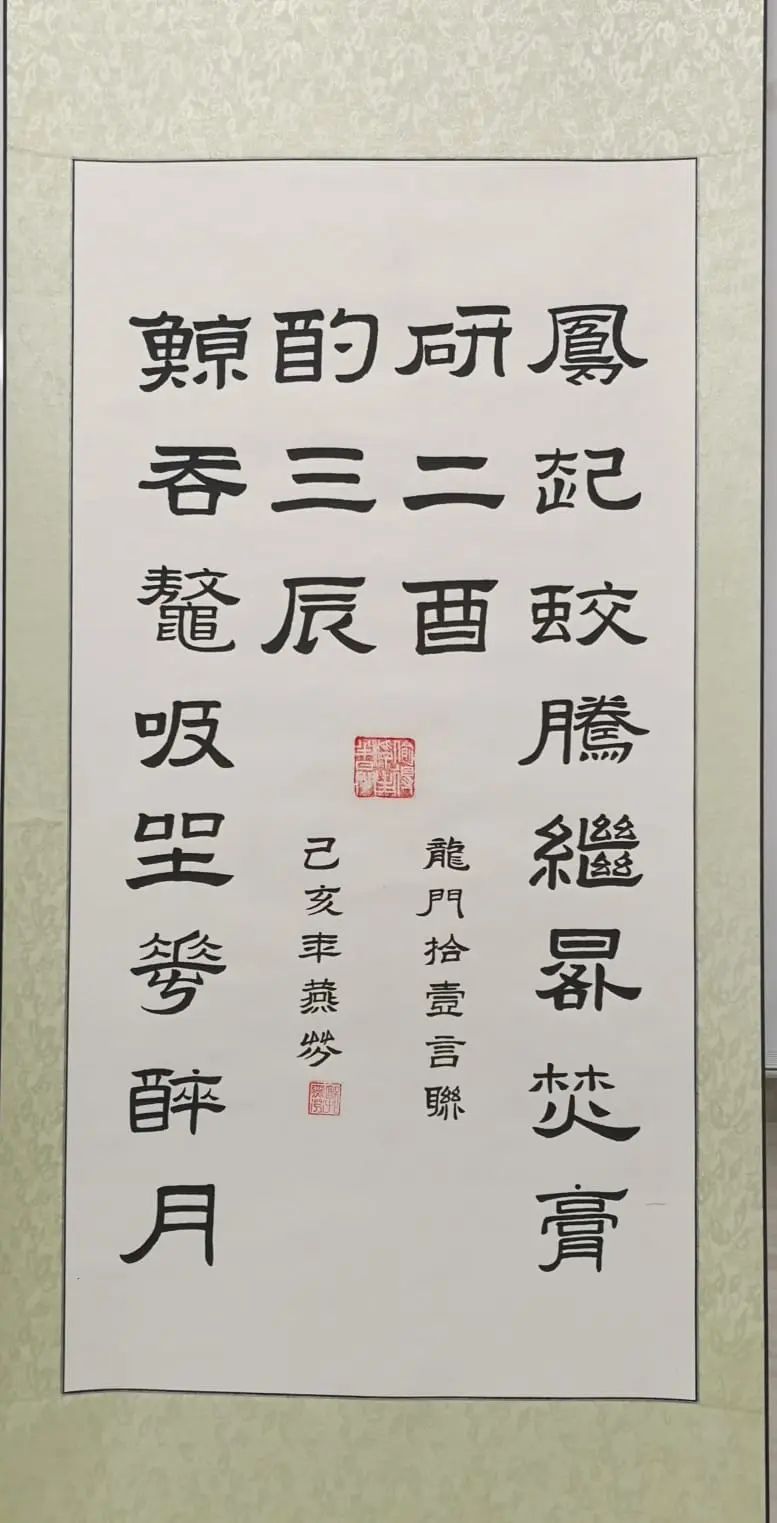 鳳起蛟騰繼晷焚膏
研二酉
鯨吞鼇吸坐華醉月
酌三辰
龍門拾壹言聯
己亥年燕芬